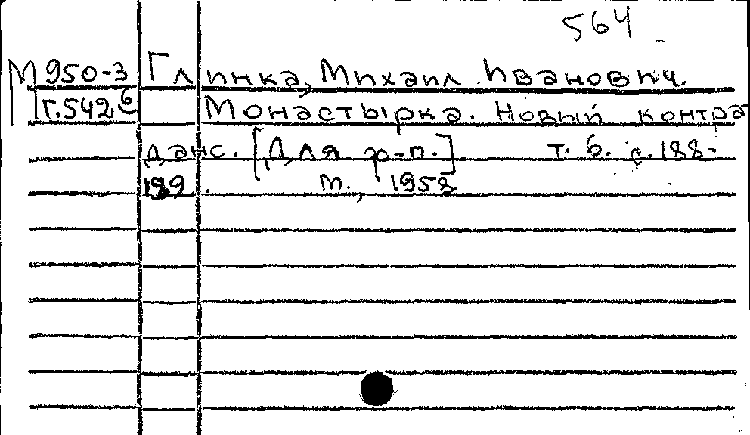 564
М950-3 Глинка, Михаил Иванович.
Г.542б Монастырка. Новый контра
данс. [Для ф-п.] т. 6. с.188-
189. М., 1958